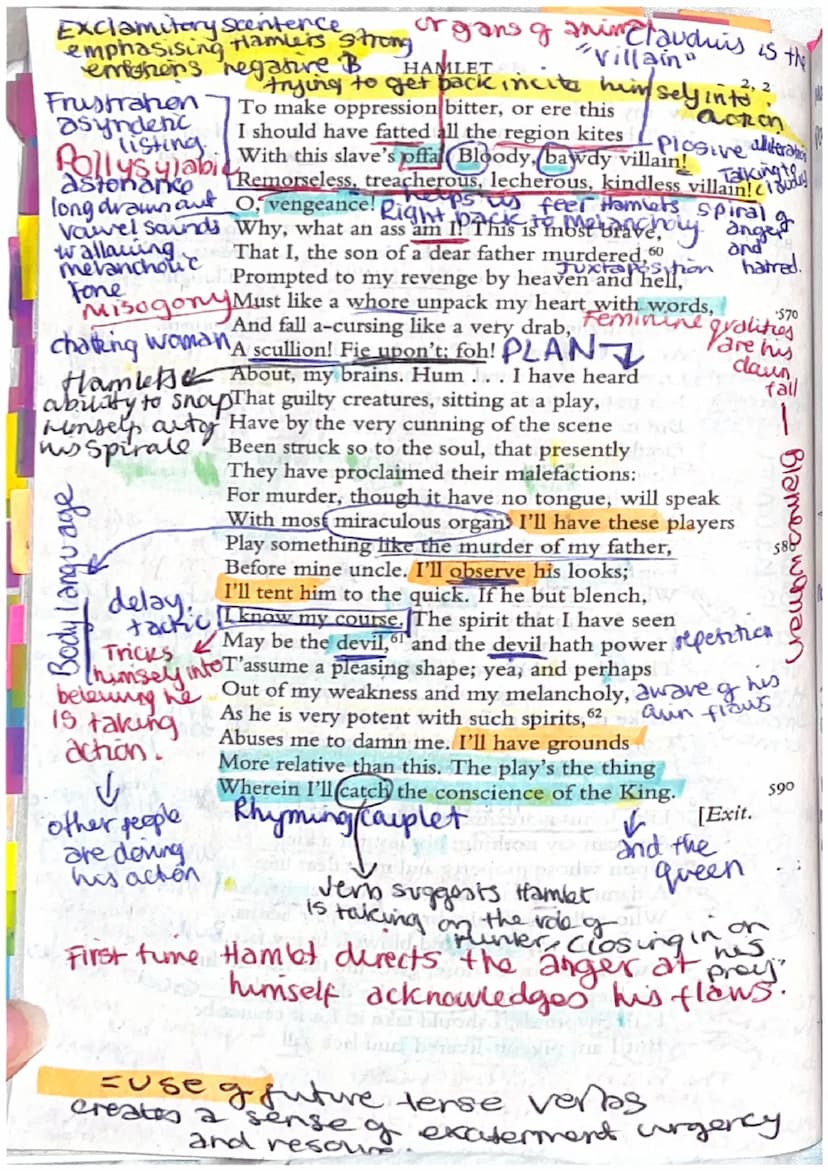 Exclamitory scentence
emphasising Hamlets strong
emotions negative
organs of animal
Claudius is the
"villain"
HAMLET
2, 2
trying to get back incite himself into
action
Frustration
asyndetic
listing
Pollysylabic
assonance
long drawn out
vowel sounds
wallowing
melancholic
tone
misogony
chatting woman
Hamlets
ability to snap
himself out of
his spirale
To make oppression bitter, or ere this
I should have fatted all the region kites
With this slave's offal. Bloody, bawdy villain!
Remorseless, treacherous, lecherous, kindless villain!
O, vengeance!
Why, what an ass am I! This is most brave,
That I, the son of a dear father murdered,60
Prompted to my revenge by heaven and hell,
Must like a whore unpack my heart with words,
570
And fall a-cursing like a very drab,
A scullion! Fie upon't; foh!
About, my brains. Hum . . . I have heard
That guilty creatures, sitting at a play,
Have by the very cunning of the scene
Been struck so to the soul, that presently
They have proclaimed their malefactions:
For murder, though it have no tongue, will speak
With most miraculous organ. I'll have these players
Play something like the murder of my father,
580
Before mine uncle. I'll observe his looks;
I'll tent him to the quick. If he but blench,
I know my course. The spirit that I have seen
May be the devil,61 and the devil hath power
T'assume a pleasing shape; yea, and perhaps
Out of my weakness and my melancholy,
As he is very potent with such spirits,62
Abuses me to damn me. I'll have grounds
More relative than this. The play's the thing
Wherein I'll catch the conscience of the King.
590
[Exit.
Plosive alliteration
Talking to
Claudius
helps us feel Hamlets spiral of
anger
and
hatred.
Right back to Melancholy
Juxtaposition
Feminine qualities
are his
down
fall
blames women
PLAN
Body language
delay
tactic
Tricks
himsely into
beleiving he
is taking
action.
other people
are doing
his action
repetition
aware of his
own flaws
Rhyming couplet
and the
queen
verb suggests Hamlet
is taking on the role of
hunter, closing in on
his
prey
First time Hamlet directs the anger at
himself acknowledges his flaws.
= use of future tense verbs
creates a sense of excitement urgency
and